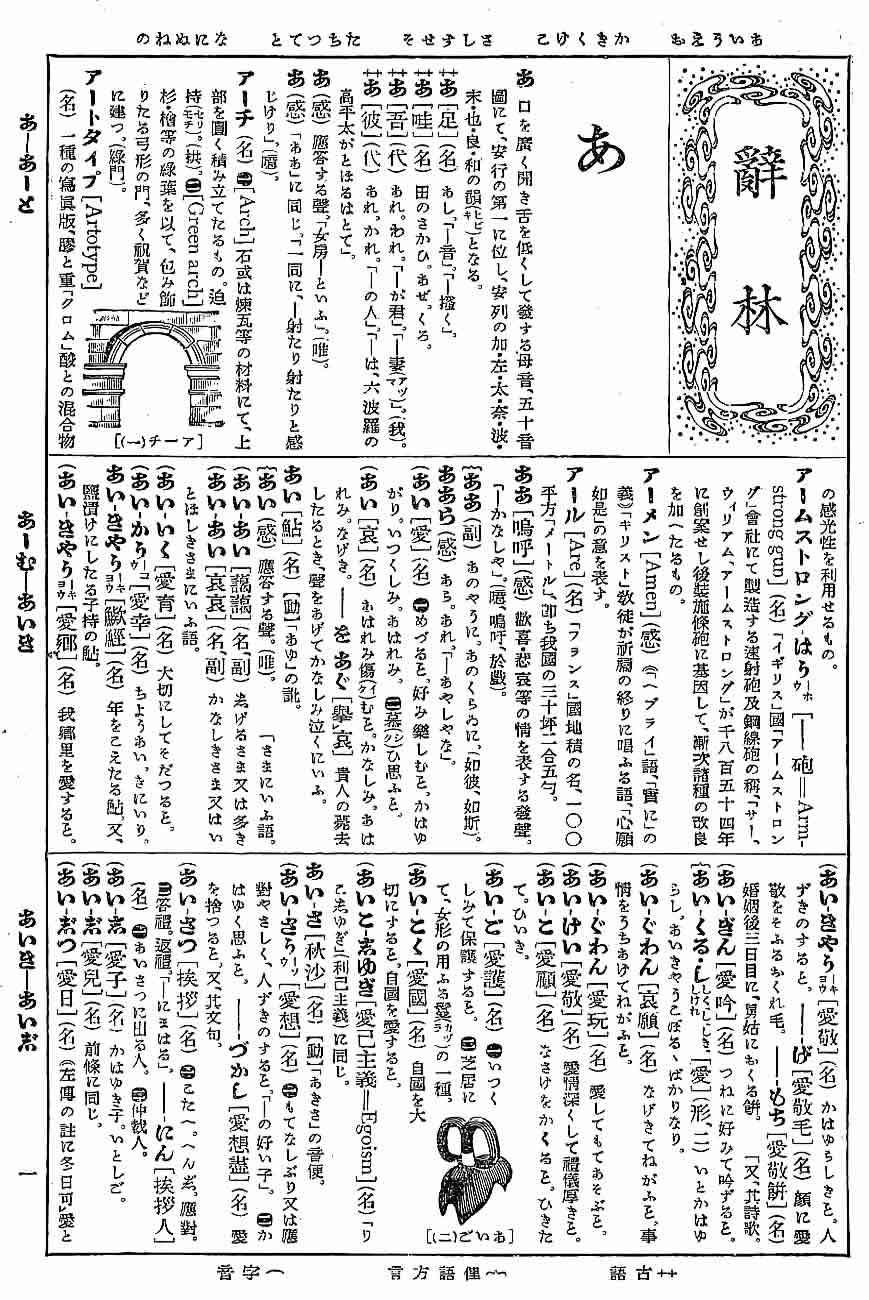 あいうえお かきくけこ さしすせそ たちつてと なにぬねの
辭林
あ
あ 口を廣く開き舌を低くして發する母音、五十音
圖にて、安行の第一に位し、安列の加・左・太・奈・波・
末・也・良・和の韻(ヒビキ)となる。
あ[足](名) あし。「―音」。「―搔く」。
あ[畦](名) 田のさかひ。あぜ。くろ。
あ[吾](代) あれ。われ。「―が君」。「―妻(アヅマ)」。(我)。
あ[彼](代) あれ。かれ。「―の人」。「―は、六波羅の
高平太がとほるはとて」。
あ(感) 應答する聲。「女房―といふ」。(唯)。
あ(感) 「ああ」に同じ。「一同に、―射たり射たりと感
じけり」。(噫)。
アーチ(名) ㊀[Arch]石或は煉瓦等の材料にて、上
部を圓く積み立てたるもの。迫
持(セリモチ)。(拱)。㊁[Green arch]
杉・檜等の綠葉を以て、包み飾
りたる弓形の門、多く祝賀など
に建つ。(綠門)。
[(一)チーア]
アートタイプ[Artotype]
(名) 一種の寫眞版、膠と重「クロム」酸との混合物
の感光性を利用せるもの。
アームストロング-はう(ーホウ)[―砲=Arm-
strong gun](名) 「イギリス」國「アームストロン
グ」會社にて製造する速射砲及鋼線砲の稱、「サー、
ウィリアム、アームストロング」が千八百五十四年
に創案せし後裝施條砲に基因して、漸次諸種の改良
を加へたるもの。
アーメン[Amen](感) (「ヘブライ」語、「實に」の
義)「キリスト」敎徒が祈禱の終りに唱ふる語、「心願
如是」の意を表す。
アール[Are](名) 「フランス」國地積の名、一〇〇
平方「メートル」、卽ち我國の三十坪二合五勺。
ああ[嗚呼](感) 歡喜・悲哀等の情を表する發聲。
「―かなしや」。(噫、嗚呼、於戲)。
ああ(副) あのやうに。あのくらゐに。(如彼、如斯)。
ああら(感) あら。あれ。「―あやしやな」。
あい[愛](名) ㊀めづること。好み樂しむこと。かはゆ
がり。いつくしみ。あはれみ。㊁慕(シタ)ひ思ふこと。
あい[哀](名) あはれみ傷(イタ)むこと。かなしみ。あは
れみ。なげき。――を あぐ[擧哀] 貴人の薨去
したるとき、聲をあげてかなしみ泣くにいふ。
あい[鮎](名) 【動】「あゆ」の訛。
あい(感) 應答する聲。(唯)。 「さまにいふ語。
あい-あい[藹藹](名、副) しげるさま又は多き
あい-あい[哀哀](名、副) かなしきさま又はい
とほしきさまにいふ語。
あい-いく[愛育](名) 大切にしてそだつること。
あい-かう(ーコウ)[愛幸](名) ちようあい。きにいり。
あい-きやう(ーキヨウ)[鮎經](名) 年をこえたる鮎。又、
鹽漬けにしたる子持の鮎。
あい-きやう(ーキヨウ)[愛鄕](名) 我鄕里を愛すること。
あい-きやう(ーキヨウ)[愛敬](名) かはゆらしきこと。人
ずきのすること。――げ[愛敬毛](名) 顏に愛
敬をそふるおくれ毛。――もち[愛敬餠](名)
婚姻後三日目に、舅姑におくる餠。 「又、其詩歌。
あい-ぎん[愛吟](名) つねに好みて吟ずること。
あい-くる・し(しくしくしきしけれ)[愛](形、二) いとかはゆ
らし。あいきやうこぼるゝばかりなり。
あい-ぐわん[哀願](名) なげきてねがふこと。事
情をうちあけてねがふこと。
あい-ぐわん[愛玩](名) 愛してもてあそぶこと。
あい-けい[愛敬](名) 愛情深くして禮儀厚きこと。
あい-こ[愛顧](名) なさけをかくること。ひきた
て。ひいき。
あい-ご[愛護](名) ㊀いつく
しみて保護すること。㊁芝居に
て、女形の用ふる鬘(カヅラ)の一種。
[(二)ごいあ]
あい-こく[愛國](名) 自國を大
切にすること。自國を愛すること。
あいこ-しゆぎ[愛己主義=Egoism](名) 「り
こしゆぎ」(利己主義)に同じ。
あい-さ[秋沙](名) 【動】「あきさ」の音便。
あい-さう(ーソウ)[愛想](名) ㊀もてなしぶり又は應
對やさしく、人ずきのすること。「―の好い子」。㊁か
はゆく思ふこと。――づかし[愛想盡](名) 愛
を捨つること。又、其文句。
あい-さつ[挨拶](名) ㊀こたへ。へんじ。應對。
㊁答禮。返禮。「―にまはる」。――にん[挨拶人]
(名) ㊀あいさつに出る人。㊁仲裁人。
あい-し[愛子](名) かはゆき子。いとしご。
あい-じ[愛兒](名) 前條に同じ。
あい-じつ[愛日](名) (左傳の註に冬日可愛と
あ―あーと
あーむ―あいき
あいき―あいじ
一
古語 俚語方言 一字音